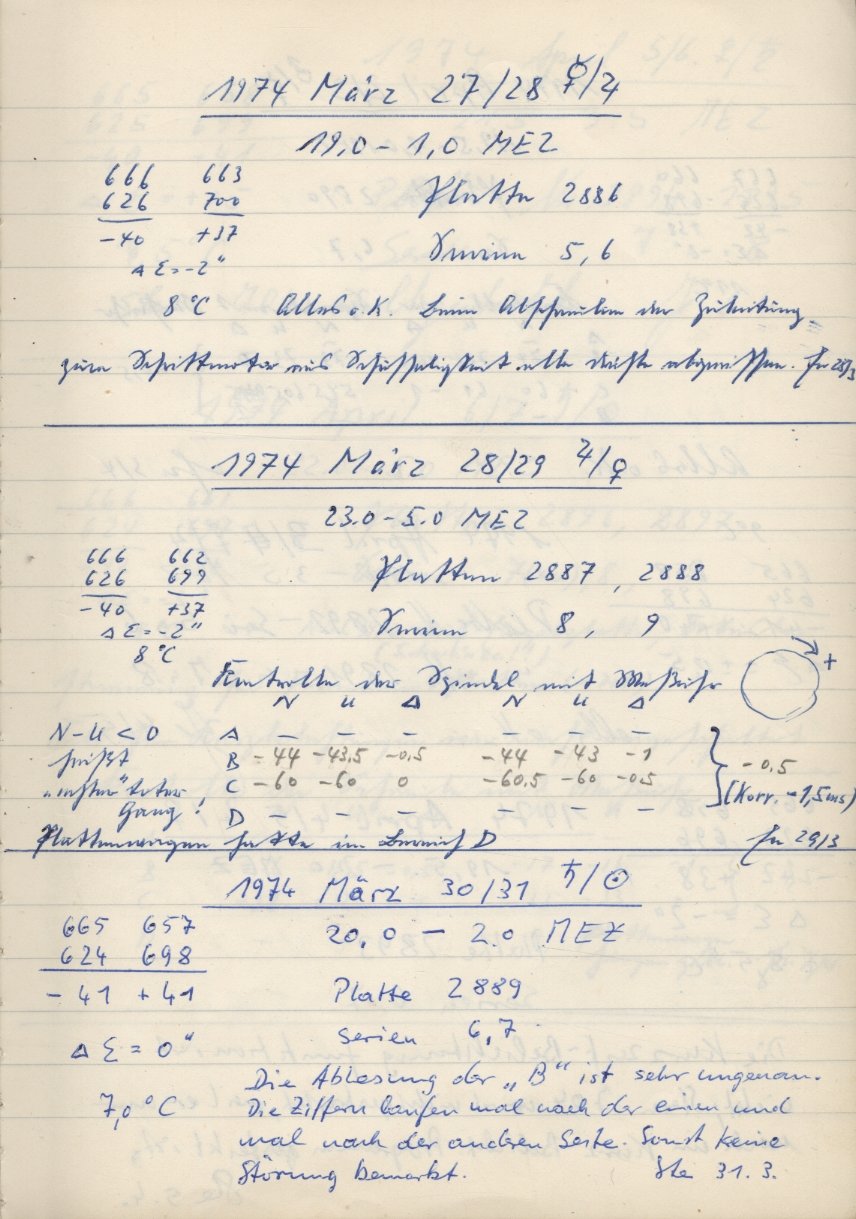 1974 März 27/28 ☿/♃
19,0 – 1,0 MEZ
666 663
626 700
-40 +37
Δ Σ = -2"
Platte 2886
Serien 5, 6
8 °C Alles o.K. Beim Abschrauben der Zuleitung
zum Schrittmotor aus Schusseligkeit alle Drähte abgerissen. 28/3
1974 März 28/29 ♃/♀
23.0 – 5.0 MEZ
666 662
626 699
-40 +37
Δ Σ = -2"
8 °C
Platten 2887, 2888
Serien 8, 9
Kontrolle der Spindel mit Meßuhr
+
N U Δ N U Δ
N-U < 0 A – – – – – –
heißt B -44 -43,5 -0,5 -44 -43 -1
„echter" toter C -60 -60 0 -60,5 -60 -0,5
Gang! D – – – – – –
} -0,5
(Korr. -1,5ms)
Plattenwagen hakte im Bereich D 29/3
1974 März 30/31 ♄/☉
20,0 – 2.0 MEZ
665 657
624 698
-41 +41
Δ Σ = 0"
7,0 °C
Platte 2889
Serien 6,7
Die Ablesung der „B" ist sehr ungenau.
Die Ziffern laufen mal nach der einen und
mal nach der anderen Seite. Sonst keine
Störung bemerkt. Ste 31.3.